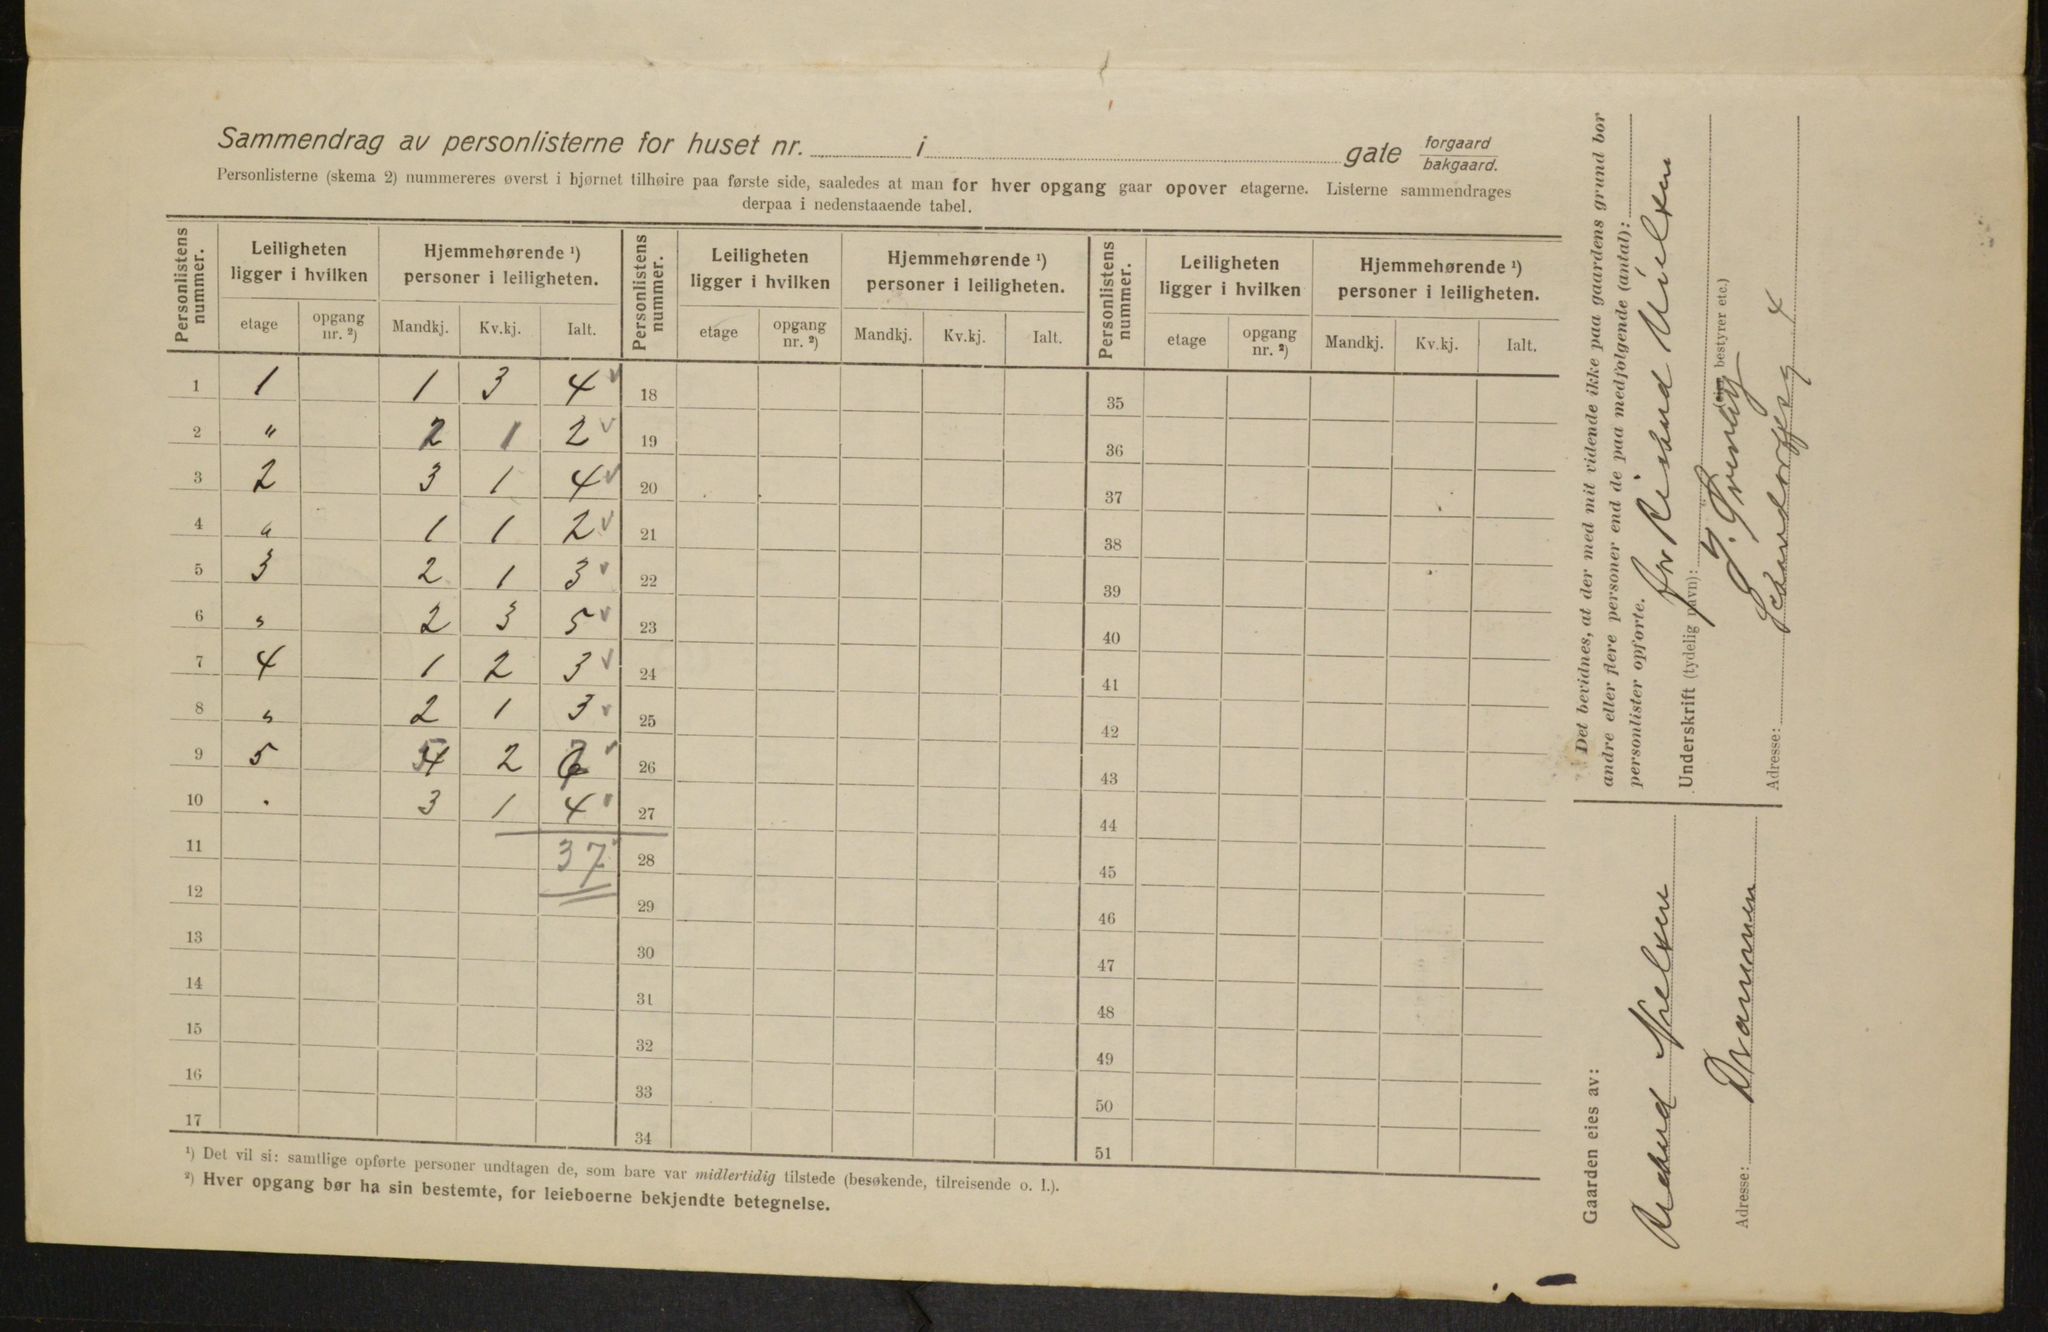 Sammendrag av personlisterne for huset nr. i gate forgaard
bakgaard.
Personlisterne (skema 2) nummereres øverst i hjørnet tilhøire paa første side, saaledes at man for hver opgang gaar opover etagerne. Listerne sammendrages
derpaa i nedenstaaende tabel.
Personlistens nummer. Leiligheten ligger i hvilken Hjemmehørende ¹) personer i leiligheten. Personlistens nummer. Leiligheten ligger i hvilken Hjemmehørende ¹) personer i leiligheten. Personlistens nummer. Leiligheten ligger i hvilken Hjemmehørende ¹) personer i leiligheten.
etage opgang nr. ²) Mandkj. Kv.kj. Ialt. etage opgang nr. ²) Mandkj. Kv.kj. Ialt. etage opgang nr. ²) Mandkj. Kv.kj. Ialt.
1 1 1 3 4 18 35
2 " 2 1 2 19 36
3 2 3 1 4 20 37
4 " 1 1 2 21 38
5 3 2 1 3 22 39
6 " 2 3 5 23 40
7 4 1 2 3 24 41
8 " 2 1 3 25 42
9 5 2 26 43
10 3 1 4 27 44
11 37 28 45
12 29 46
13 30 47
14 31 48
15 32 49
16 33 50
17 34 51
¹) Det vil si: samtlige opførte personer undtagen de, som bare var midlertidig tilstede (besøkende, tilreisende o. l.).
²) Hver opgang bør ha sin bestemte, for leieboerne bekjendte betegnelse.
Det bevidnes, at der med mit vidende ikke paa gaardens grund bor
andre eller flere personer end de paa medfølgende (antal):
personlister opførte.
for
Underskrift (tydelig navn):
(eier, bestyrer etc.)
Adresse: 4
Gaarden eies av:
Nielsen
Adresse: Drammen